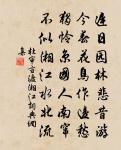 遲日園林悲昔遊
今春花鳥作邊愁
獨憐京國人南竄
不似湘江水北流
杜審言渡湘江詞典網
集